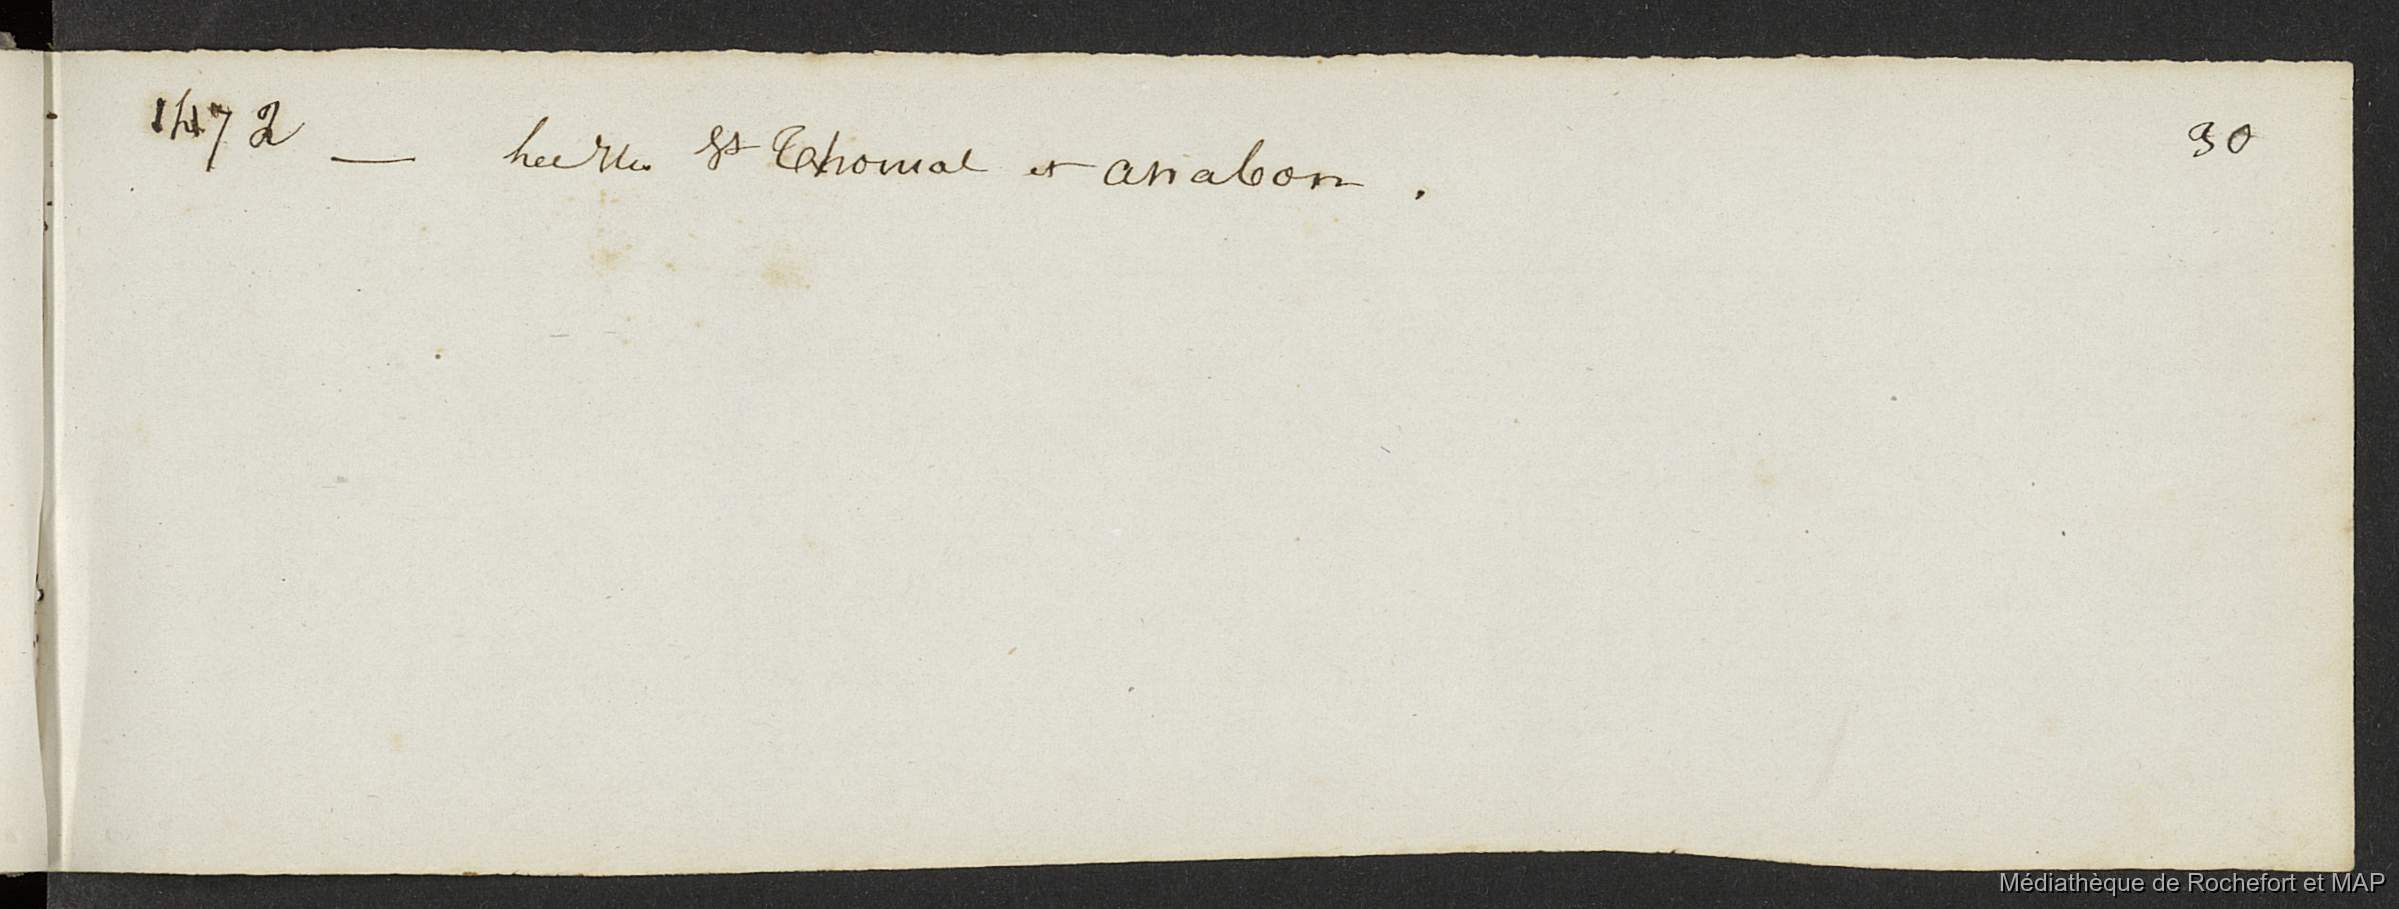 1472 — St Thomas et anabon . 30
Médiathèque de Rochefort et MAP